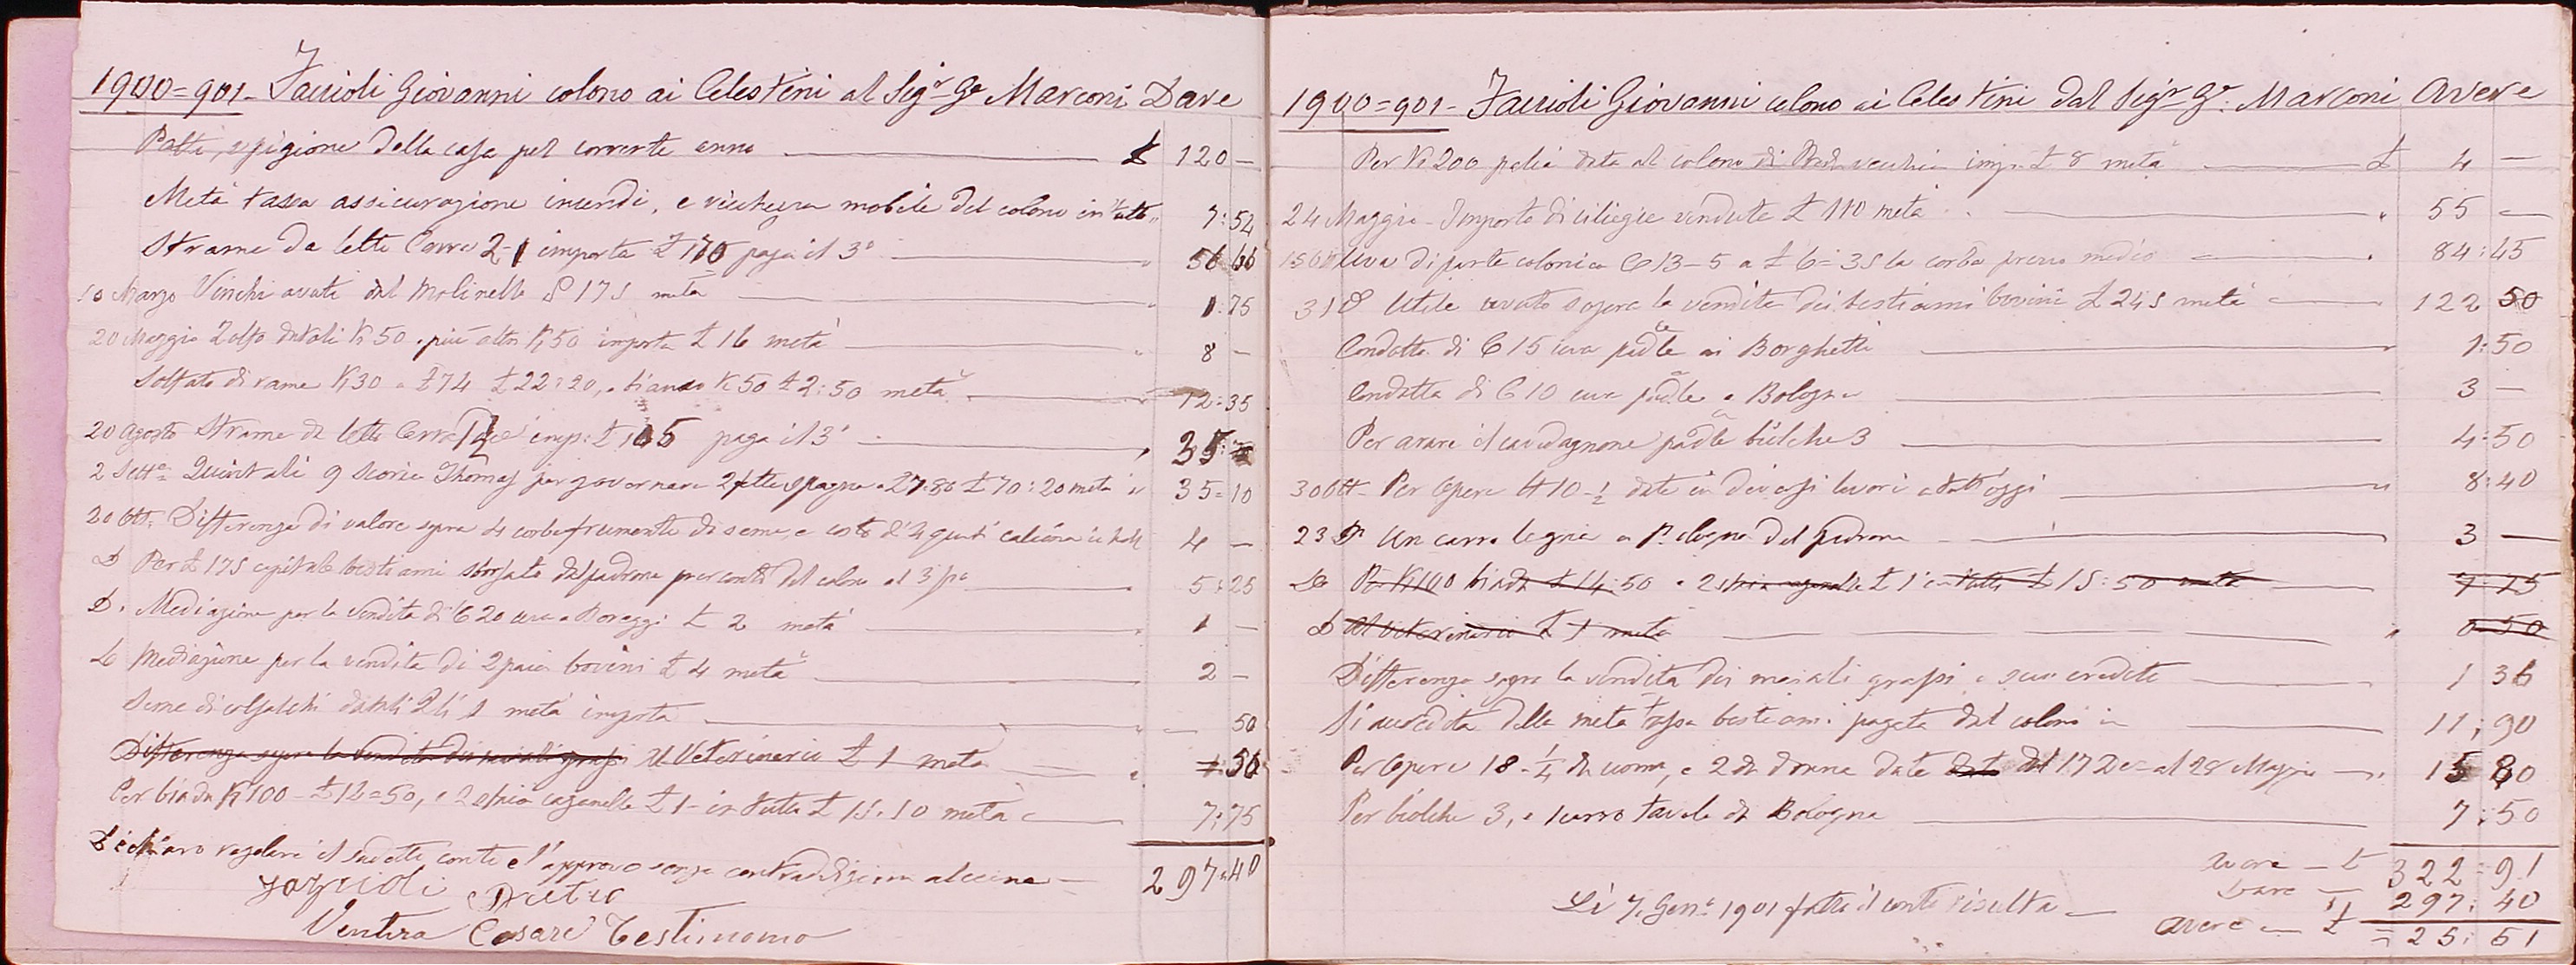 1900=901- Faccioli Giovanni colono ai Celestini al Sigr Ge Marconi Dare
Patti, e pigione della casa pel corrente anno £ 120 —
Metà tassa assicurazione incendi, e ricchezza mobile del colono in tutto " 7:54
Strame da letto Carra 2-1 importa £ 170 paga il 3° " 56 66
10 Marzo Vinchi avuti dal Molinello S 175 metà " 1:75
20 Maggio Zolfo datoli K 50. più altri K 50 importa £ 16 metà " 8 —
Solfato di rame K 30 a £ 74 £ 22:20, e bianco K 50 £ 2:50 metà " 12:35
20 Agosto Strame da letto Carra imp: £ 105 paga il 3° " 35
2 Sette Quintali 9 Scorie Thomas per governare 2 a £ 7:80 £ 70:20 metà " 35=10
20 Ott. Differenza di valore sopra 4 corbe frumento di seme, e 4 —
D Per £ 175 capitale bestiami sborsato dal padrone per conto del colono al 3 p% " 5:25
D. Mediazione per la vendita di C 20 uva a Boreggi £ 2 metà " 1 —
D Mediazione per la vendita di 2 paia bovini £ 4 metà " 2 —
Seme di datoli metà importa " 50
Differenza sopra la vendita dei maiali grassi Al Veterinario £ 1 metà " 50
Per biada K 100 - £ 12=50, e 2 £ 1 - in tutto £ 15:50 metà 7:75
297:40
Dichiaro regolare il sudetto conto e l'approvo senza contradizione alcuna —
Ventura Cesare Testimonio
1900=901- Faccioli Giovanni colono ai Celestini dal Sigr Ge. Marconi Avere
Per K 200 data al colono di imp. £ 8 metà £ 4 —
24 Maggio - Importo di ciliegie vendute £ 110 metà " 55 —
Uva di parte colonica C 13-5 a £ 6=35 la corba prezzo medio " 84:45
31 8 Utile avuto sopra la vendita dei bestiami bovini £ 245 metà " 122 50
Condotta di C 15 uva padle ai Borghetti " 1:50
Condotta di C 10 uva padle a Bologna 3 —
Per arare il cavedagnone padle biolche 3 4:50
30 Ott - Per Opere N 10-½ date in diversi lavori a tutt'oggi " 8:40
23 D. Un carro legna a Bologna del padrone 3 —
D Per K 100 biada £ 14:50 e 2 £ 1 in tutto £ 15:50 metà 7:75
D Al Veterinario £ 1 metà " 0:50
Differenza sopra la vendita dei maiali grassi a suo credito " 1 36
Si accredita della metà tassa bestiami pagata dal colono in " 11:90
Per Opere 18-¼ da uomo, e 2 da donna date dal 17 De= al 28 Maggio " 15 80
Per biolche 3, e 1 carro tavole da Bologna 7:50
Avere — £ 322=91
Dare — " 297:40
Li 7. Gene 1901 fatto il conto risulta — Avere — £ = 25:51